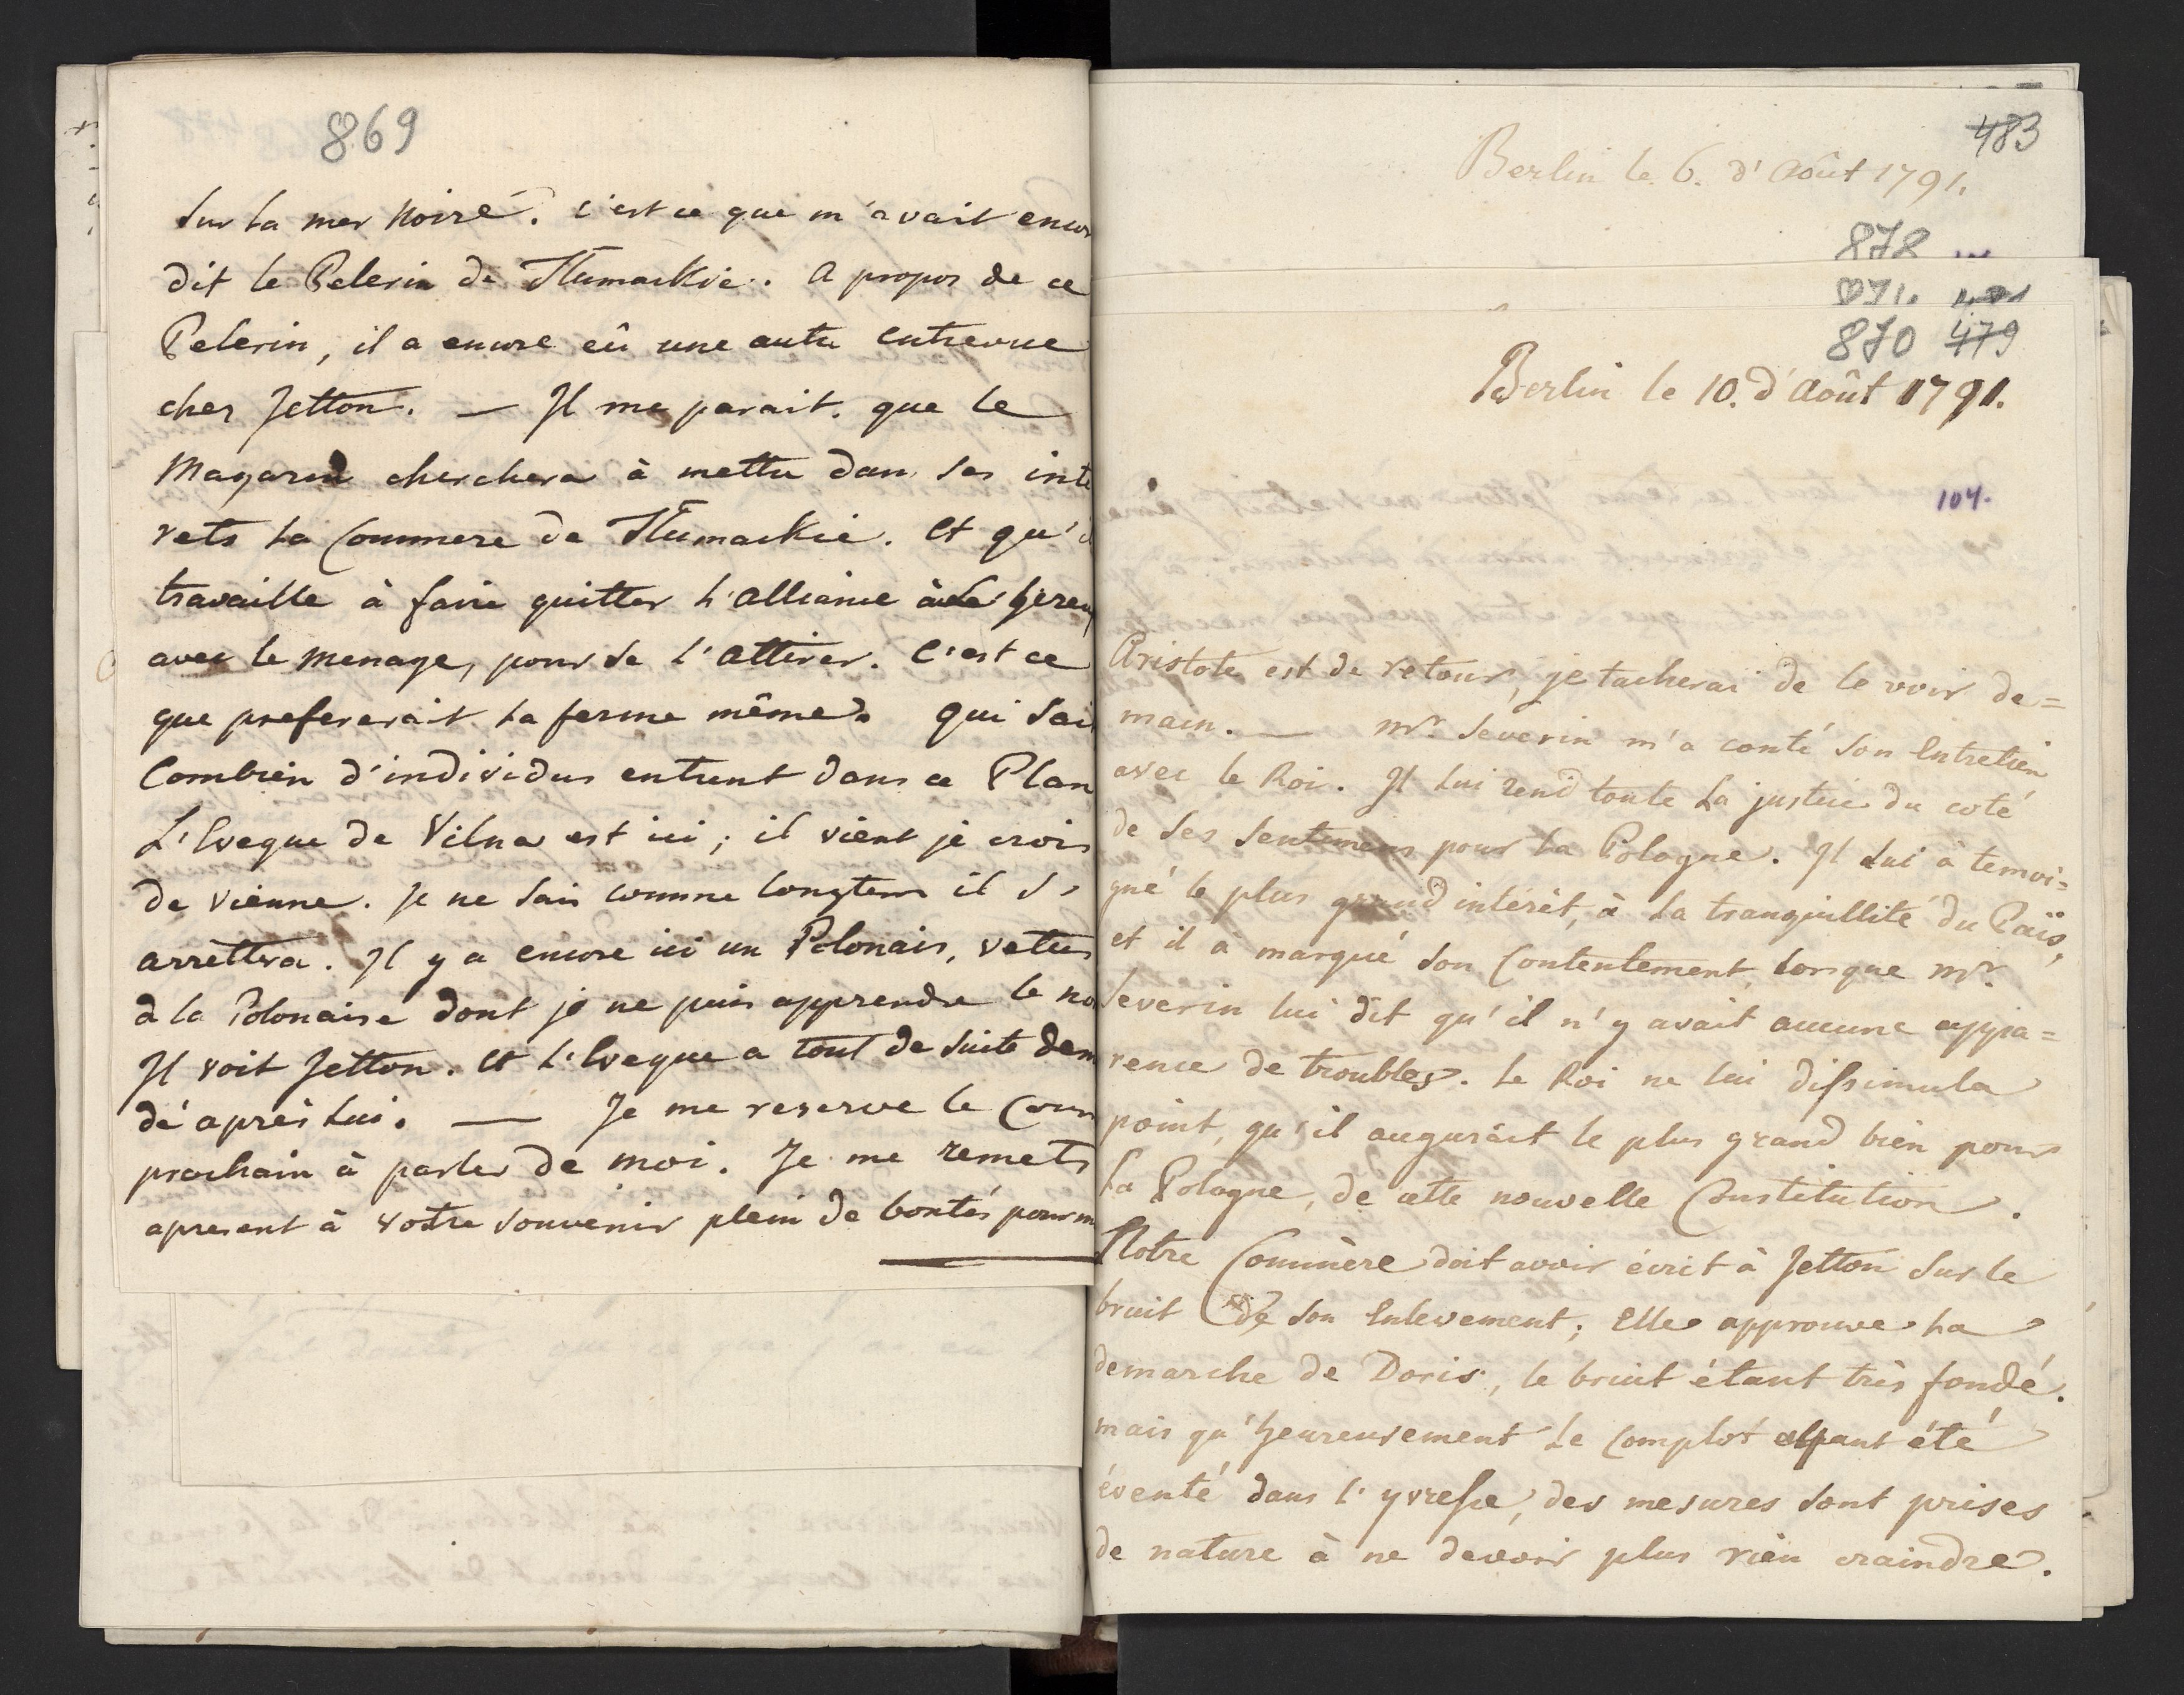 869
sur la mer Noire. c'est ce que m'avait enco
dit le Pelerin de Tlumackie. A propos de ce
Pelerin, il a encore eû une autre entrevue
chez Jetton. — Il me parait, que le
Magarnd cherchera à mettre dans ses inte
rets la Commere de Tlumackie. et qu'
travaille à faire quitter l'alliance
avec le menage, pour se l'attirer. C'est ce
que prefererait la ferme même. qui Sai
Combien d'individus entrent dans ce Plan
L'Eveque de Vilna est ici; il vient je crois
de vienne. Je ne Sais comme longtems il s'
arrettera. Il y a encore ici un Polonais, vetu
à la Polonaise dont je ne puis apprendre le no
Il voit Jetton. et l'Eveque a tout de suite dem
dé après lui. — Je me reserve le Cour
prochain à parler de moi. Je me remets
apresent à votre souvenir plein de bontés pour m
483
Berlin le 6. d'Août 1791.
878
871.
870 479
Berlin le 10. d'Août 1791.
104.
Aristote est de retour, je tacherai de le voir de=
main. — Mr. Severin m'a conté son Entretien
avec le Roi. Il lui rend toute la justice du coté
de ses sentimens pour la Pologne. Il lui à temoi=
gné le plus grand interêt, à la tranquillité du Païs,
et il a marqué son Contentement, lorsque Mr.
Severin lui dit qu'il n'y avait aucune appa=
rence de troubles. Le Roi ne lui dissimula
point, qu'il augurait le plus grand bien pour
la Pologne, de cette nouvelle Constitution.
Notre Commère doit avoir écrit à Jetton sur le
bruit de son Enlevement; Elle approuve la
demarche de Doris, le bruit étant très fondé.
mais qu'heureusement le Complot ayant été
éventé dans l'yvresse, des mesures sont prises
de nature à ne devoir plus rien craindre.